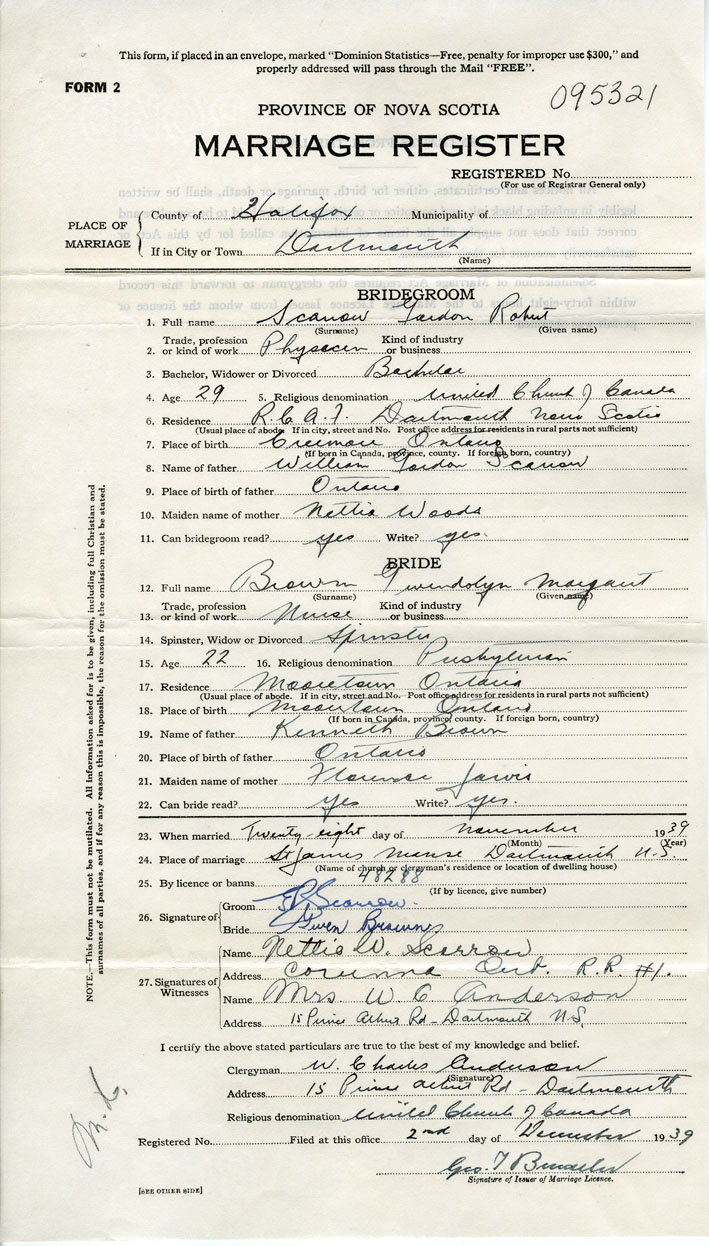 This form, if placed in an envelope, marked "Dominion Statistics—Free, penalty for improper use $300," and
properly addressed will pass through the Mail "FREE".
FORM 2
095321
PROVINCE OF NOVA SCOTIA
MARRIAGE REGISTER
REGISTERED No.
(For use of Registrar General only)
PLACE OF MARRIAGE
County of Halifax Municipality of
If in City or Town Dartmouth
(Name)
BRIDEGROOM
1. Full name Scarrow Gordon Robert
(Surname) (Given name)
2. Trade, profession or kind of work Physecian Kind of industry or business
3. Bachelor, Widower or Divorced Bachelor
4. Age 29 5. Religious denomination United Church of Canada
6. Residence R.C.A.F. Dartmouth Nova Scotia
(Usual place of abode. If in city, street and No. Post office address for residents in rural parts not sufficient)
7. Place of birth Creemore Ontario
(If born in Canada, province, county. If foreign born, country)
8. Name of father William Gordon Scarrow
9. Place of birth of father Ontario
10. Maiden name of mother Nettie Woods
11. Can bridegroom read? yes Write? yes.
BRIDE
12. Full name Brown Gwendolyn Margaret
(Surname) (Given name)
13. Trade, profession or kind of work Nurse Kind of industry or business
14. Spinster, Widow or Divorced Spinster
15. Age 22 16. Religious denomination Presbyterian
17. Residence Mooretown Ontario
(Usual place of abode. If in city, street and No. Post office address for residents in rural parts not sufficient)
18. Place of birth Mooretown Ontario
(If born in Canada, province, county. If foreign born, country)
19. Name of father Kenneth Brown
20. Place of birth of father Ontario
21. Maiden name of mother Florence Jarvis
22. Can bride read? yes Write? yes.
23. When married Twenty-eight day of November 1939
(Month) (Year)
24. Place of marriage St James Manse Dartmouth N.S.
(Name of church or clergyman's residence or location of dwelling house)
25. By licence or banns 48288
(If by licence, give number)
26. Signature of
Groom Scarrow.
Bride Gwen Brown
27. Signatures of Witnesses
Name Nettie W. Scarrow
Address Corunna Ont. R.R. #1.
Name Mrs. W C Anderson
Address 15 Prince Arthur Rd - Dartmouth N.S.
I certify the above stated particulars are true to the best of my knowledge and belief.
Clergyman W. Charles Anderson
(Signature)
Address 15 Prince Arthur Rd - Dartmouth
Religious denomination United Church of Canada
Registered No. Filed at this office 2nd day of December 1939
Geo. T
Signature of Issuer of Marriage Licence.
[SEE OTHER SIDE]
NOTE.—This form must not be mutilated. All information asked for is to be given, including full Christian and
surnames of all parties, and if for any reason this is impossible, the reason for the omission must be stated.